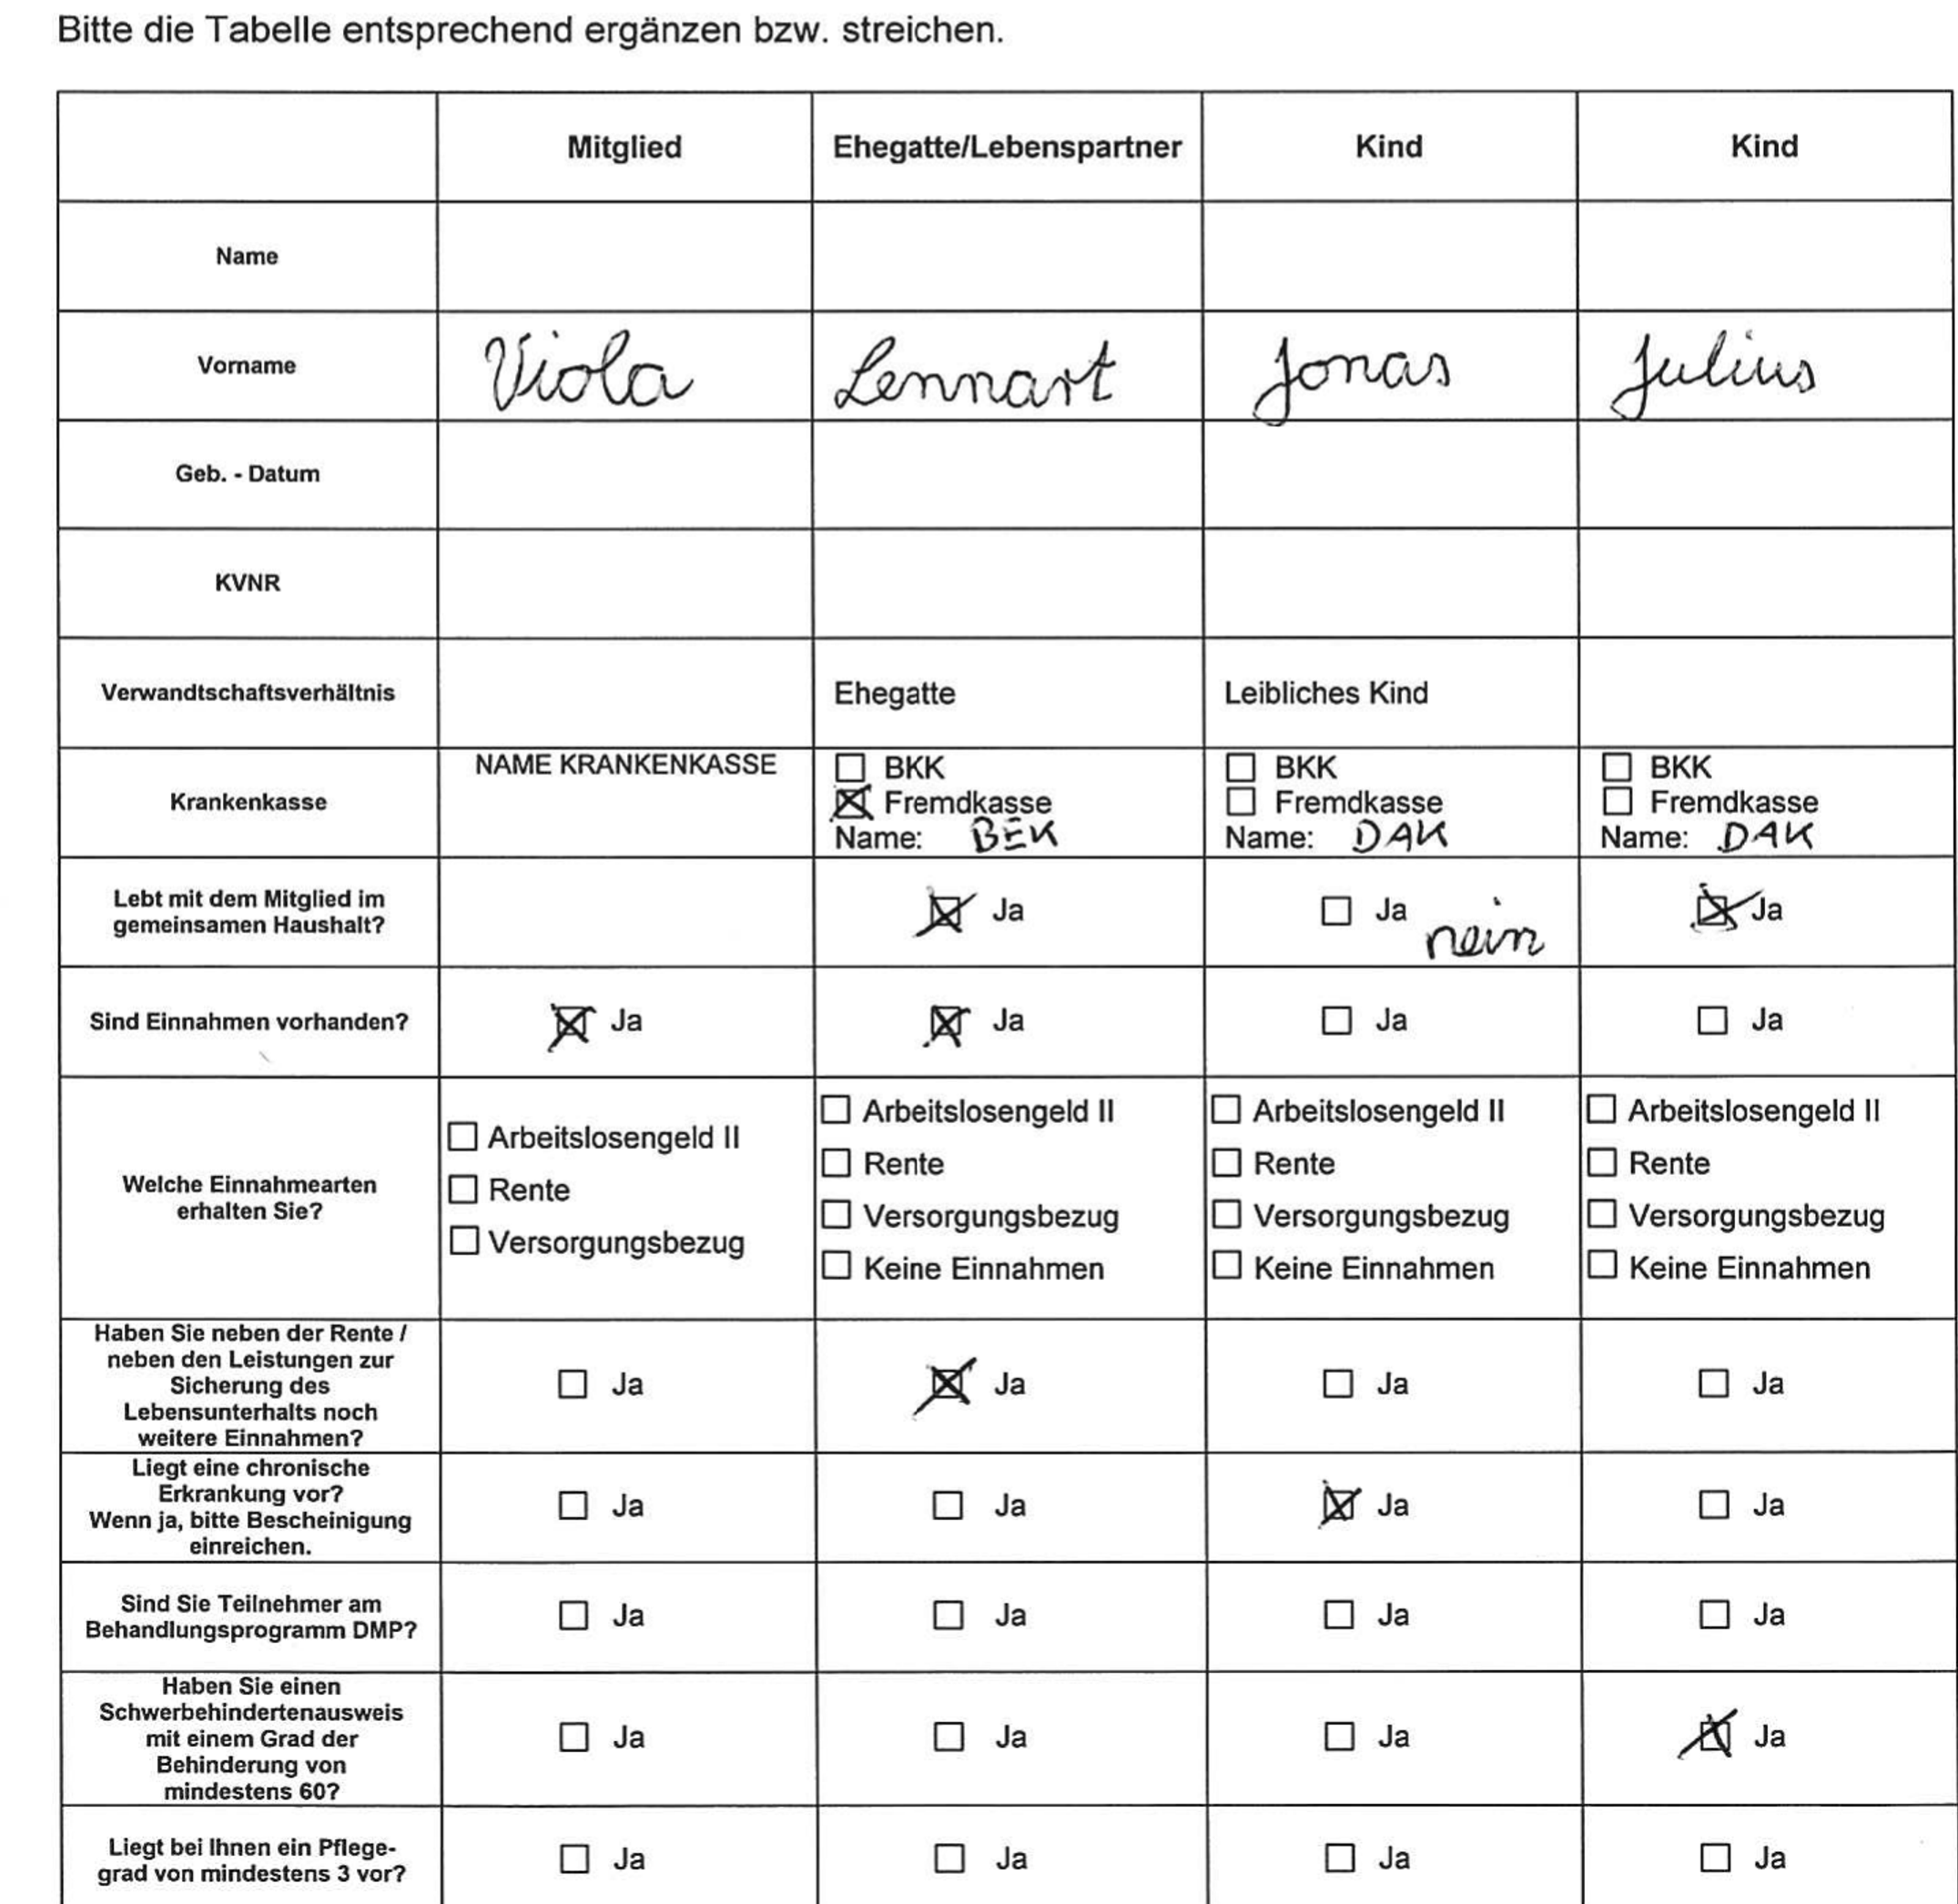 Bitte die Tabelle entsprechend ergänzen bzw. streichen.
Mitglied Ehegatte/Lebenspartner Kind Kind
Name
Vorname Viola Lennart Jonas Julius
Geb. - Datum
KVNR
Verwandtschaftsverhältnis Ehegatte Leibliches Kind
Krankenkasse
NAME KRANKENKASSE
☐ BKK
☒ Fremdkasse
Name: BEK
☐ BKK
☐ Fremdkasse
Name: DAK
☐ BKK
☐ Fremdkasse
Name: DAK
Lebt mit dem Mitglied im
gemeinsamen Haushalt?
☒ Ja
☐ Ja nein
☒ Ja
Sind Einnahmen vorhanden? ☒ Ja ☒ Ja ☐ Ja ☐ Ja
Welche Einnahmearten
erhalten Sie?
☐ Arbeitslosengeld II
☐ Rente
☐ Versorgungsbezug
☐ Arbeitslosengeld II
☐ Rente
☐ Versorgungsbezug
☐ Keine Einnahmen
☐ Arbeitslosengeld II
☐ Rente
☐ Versorgungsbezug
☐ Keine Einnahmen
☐ Arbeitslosengeld II
☐ Rente
☐ Versorgungsbezug
☐ Keine Einnahmen
Haben Sie neben der Rente /
neben den Leistungen zur
Sicherung des
Lebensunterhalts noch
weitere Einnahmen?
☐ Ja ☒ Ja ☐ Ja ☐ Ja
Liegt eine chronische
Erkrankung vor?
Wenn ja, bitte Bescheinigung
einreichen.
☐ Ja ☐ Ja ☒ Ja ☐ Ja
Sind Sie Teilnehmer am
Behandlungsprogramm DMP?
☐ Ja ☐ Ja ☐ Ja ☐ Ja
Haben Sie einen
Schwerbehindertenausweis
mit einem Grad der
Behinderung von
mindestens 60?
☐ Ja ☐ Ja ☐ Ja ☒ Ja
Liegt bei Ihnen ein Pflege-
grad von mindestens 3 vor?
☐ Ja ☐ Ja ☐ Ja ☐ Ja